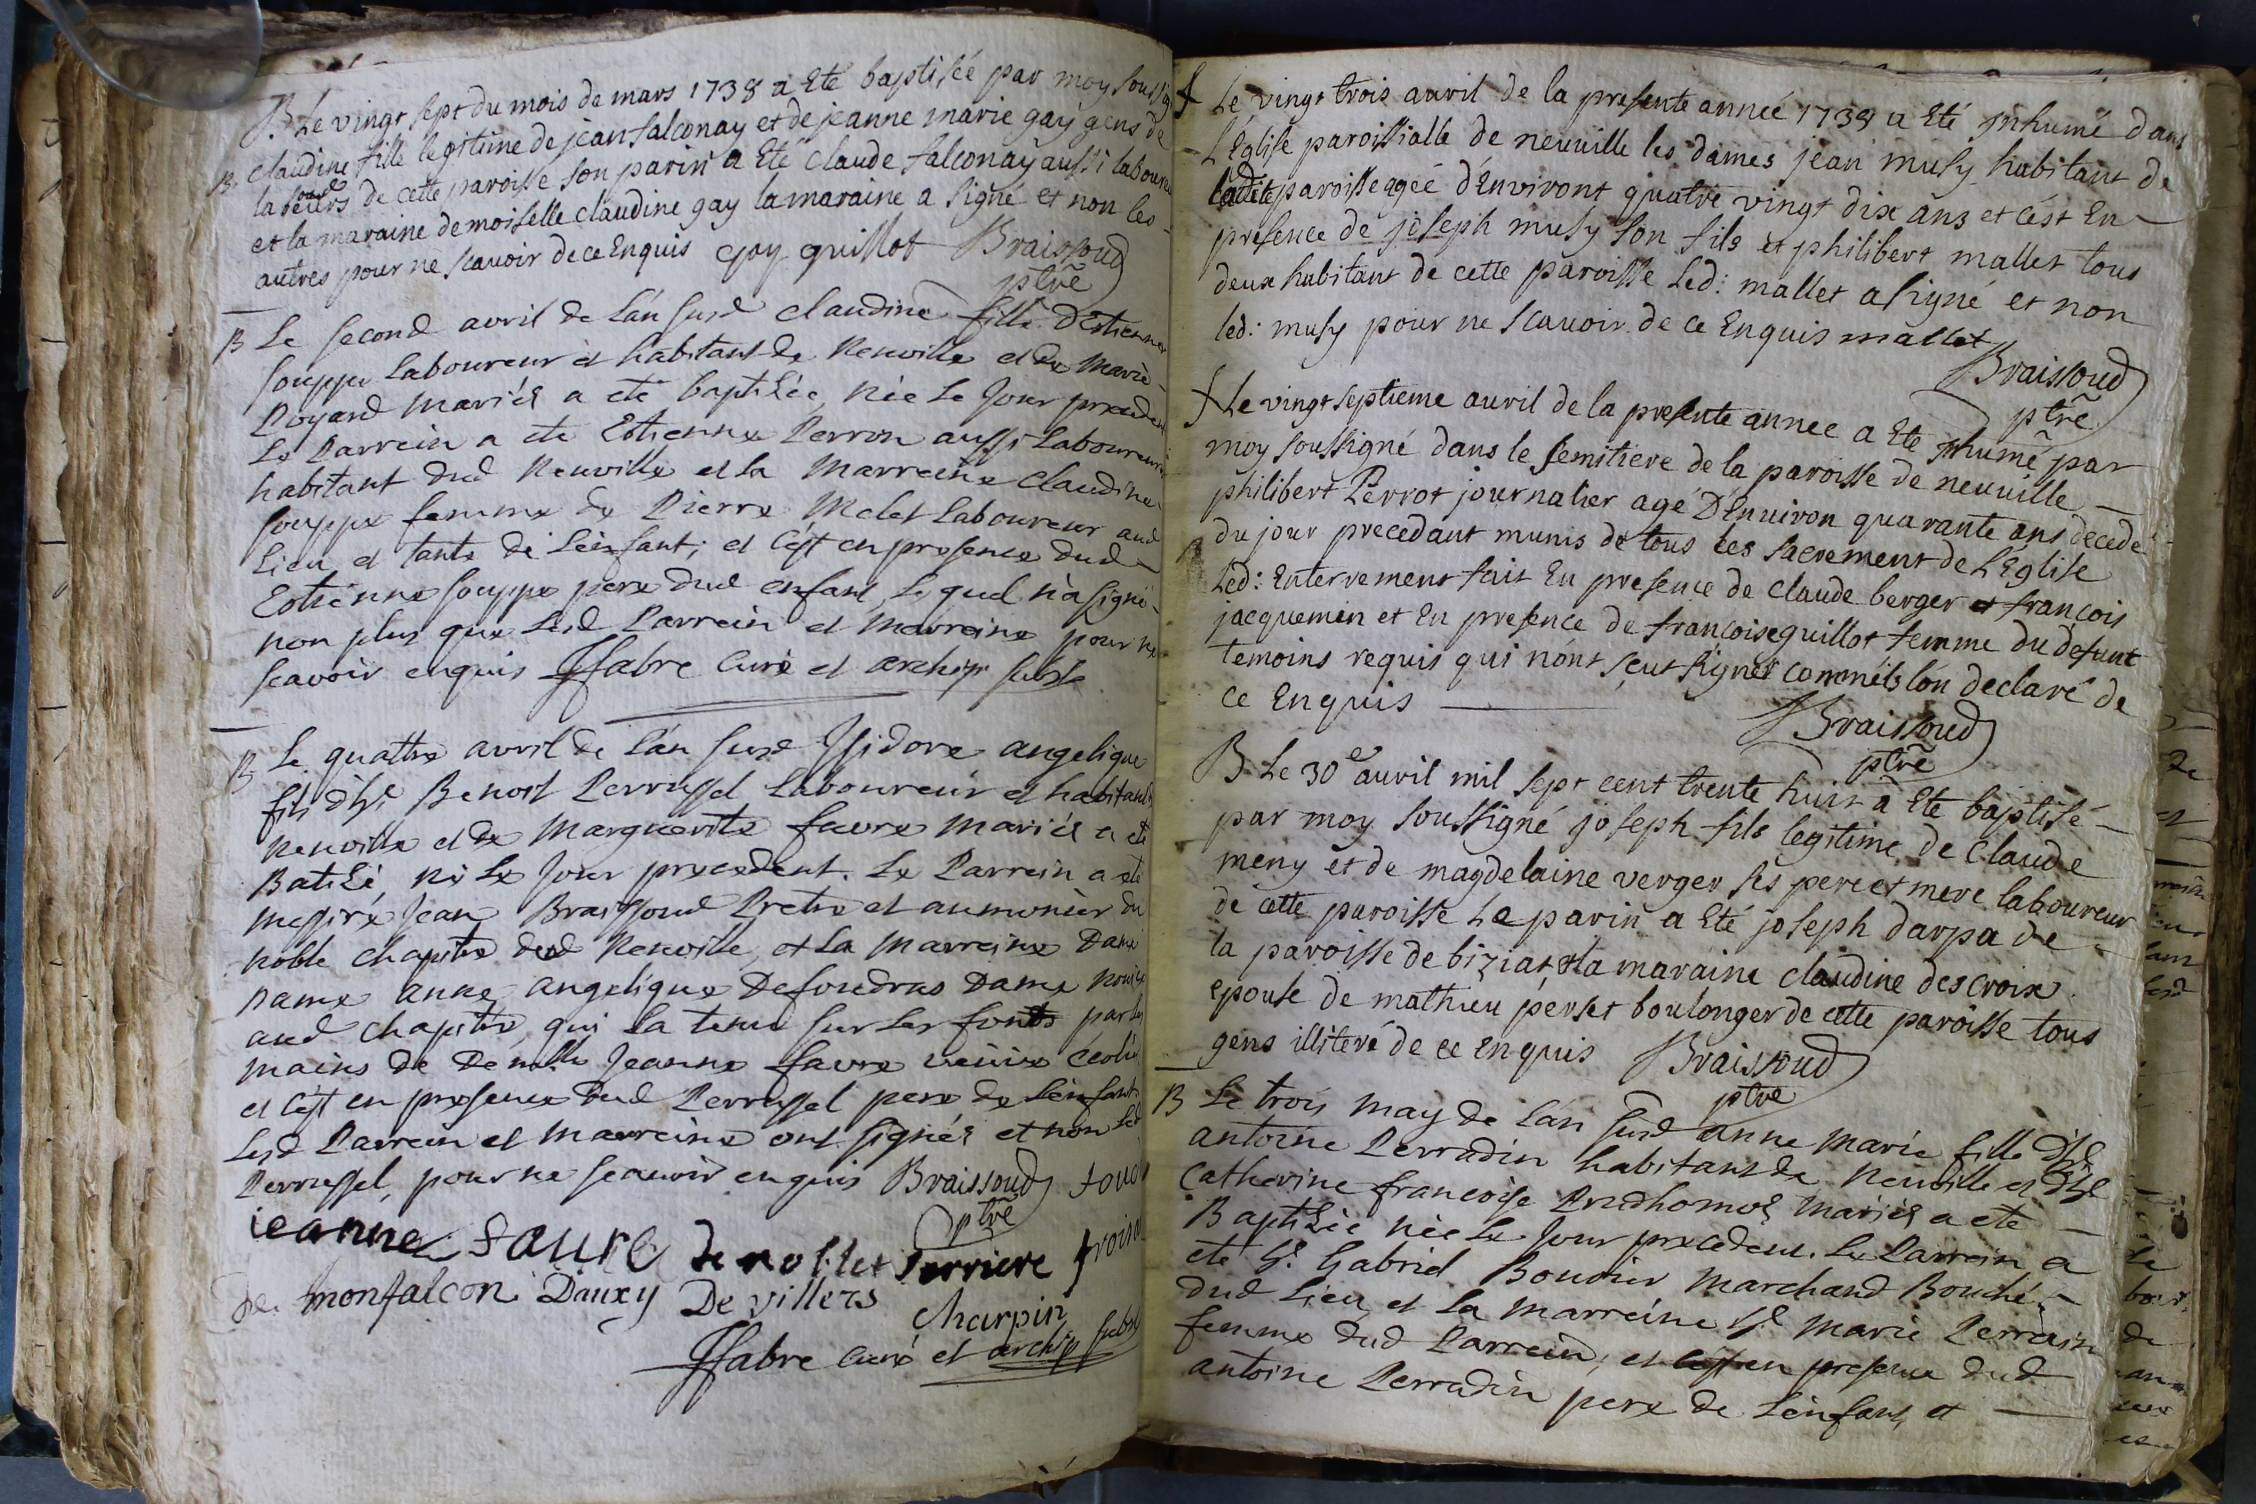 B Le vingt sept du mois de mars 1738 a Eté baptisée par moy soussig
claudine fille legitime de jean falconay et de jeanne marie gay gens de
B laboeurs de cette paroisse son parin a Eté claude falconay aussi laboureur
et la maraine demoiselle claudine gay la maraine a signé et non les
autres pour ne scavoir de ce Enquis gay guillot Braissoud
ptrē
B Le second avril de l'an susd claudine fille d'Estienne
souppe Laboureur et habitant de Neuville et de Marie
Poyard mariés a eté baptisée, née le jour precedent
Le Parrein a eté Estienne Perron aussi Laboureur
habitant dud Neuville et la Marreine claudine
souppe femme de Pierre Melet Laboureur aud
Lieu et tante de l'enfant; et c'est en presence dud
Estienne souppe pere dud enfant, lequel n'a signé
non plus que Lesd Parrein et Marreine pour ne
scavoir enquis Jfabre curé et archip subst
B Le quattre avril de l'an susd Isidore angelique
fils d'h.e Benoist Perrussel Laboureur et habitant
Neuville et de Marguerite favre mariés a eté
Batisé, né Le jour precedent. Le Parrein a eté
messire Jean Braissoud Pretre et aumonier du
noble chapitre dud Neuville, et la Marreine Dame
Dame anne angelique Defoudras Dame novice
aud chapitre, qui l'a tenu sur les fonts par les
mains de Demlle Jeanne favre
et c'est en presence dud Perrussel pere de L'enfant
Lesd Parrein et Marreine ont signés et non led
Perrussel, pour ne scavoir enquis Braissoud
ptrē
ieanne faure
de monfalcon Dauxy De villers charpin
Jfabre curé et archip subst
Le vingt trois auril de la presente année 1738 a Eté jnhumé dans
L'Eglise paroissialle de neuville les dames jean musy habitant de
ladite paroisse agée d'Environt quatre vingt dix ans et c'est En
presence de joseph musy son fils et philibert mallet tous
deux habitant de cette paroisse Led: mallet a signé et non
led: musy pour ne scauoir de ce Enquis mallet
Braissoud
ptrē
Le vingt septieme auril de la presente annee a Eté jnhumē par
moy soussigné dans le semitiere de la paroisse de neuville
philibert Perrot journalier agé D'Enuiron quarante ans decedé
du jour precedant munis de tous les sacrement de L'Eglise
Led: Enterrement fait En presence de claude berger et francois
jacquemin et En presence de francoise guillot femme du defunt
temoins requis qui n'ont sçut signer comme ils l'on declaré de
ce Enquis
Braissoud
ptrē
B Le 30e auril mil sept cent trente huit a Eté baptisé
par moy soussigné joseph fils legitime de claude
meny et de magdelaine verger ses pere et mere laboureur
de cette paroisse Le parin a Eté joseph darpa de
la paroisse de biziat et la maraine claudine descroix
epouse de mathieu perset boulonger de cette paroisse tous
gens illiteré de ce enquis Braissoud
ptre
B Le trois may de l'an susd anne Marie fille d'h.e
antoine Perradin habitant de Neuville et d'h.e
Catherine francoise Prudhomme mariés a eté
Baptisée née Le jour precedent. Le Parrein a
eté Sr. Gabriel Bouvier marchand Bouché
dud Lieu, et la Marreine marie Perradin
femme dud Parrein, et c'est en presence dud
antoine Perradin pere de L'enfant, et